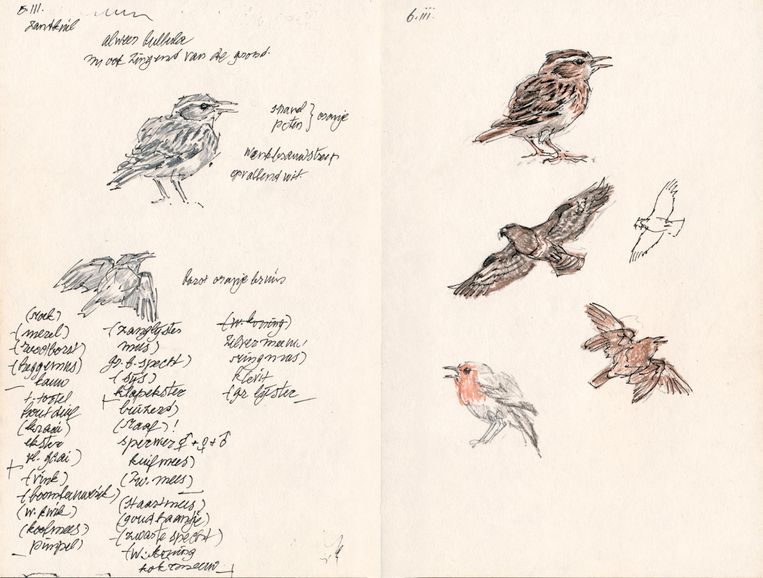 5.III.
alweer
en ook zingend van de grond.
snavel } oranje
poten
wenkbrauwstreep
opvallend wit.
borst oranje bruin
(roek)
(merel)
(roodborst)
(heggemus)
kauw
t. tortel
houtduif
(kraai)
ekster
vl. gaai
(vink)
(boomleeuwerik)
(w. kwik)
(koolmees)
pimpel)
(zanglijster
mees)
gr. b. specht)
(sijs)
klapekster
buizerd)
(raaf)!
sperwer ♂ + ♀ + ♂
kuifmees)
(zw. mees)
(staartmees)
(goudhaantje)
(zwarte specht)
(w. koning
kokmeeuw
(w. koning)
zilvermeeuw
ringmus)
kievit
(gr. lijster
6.III.